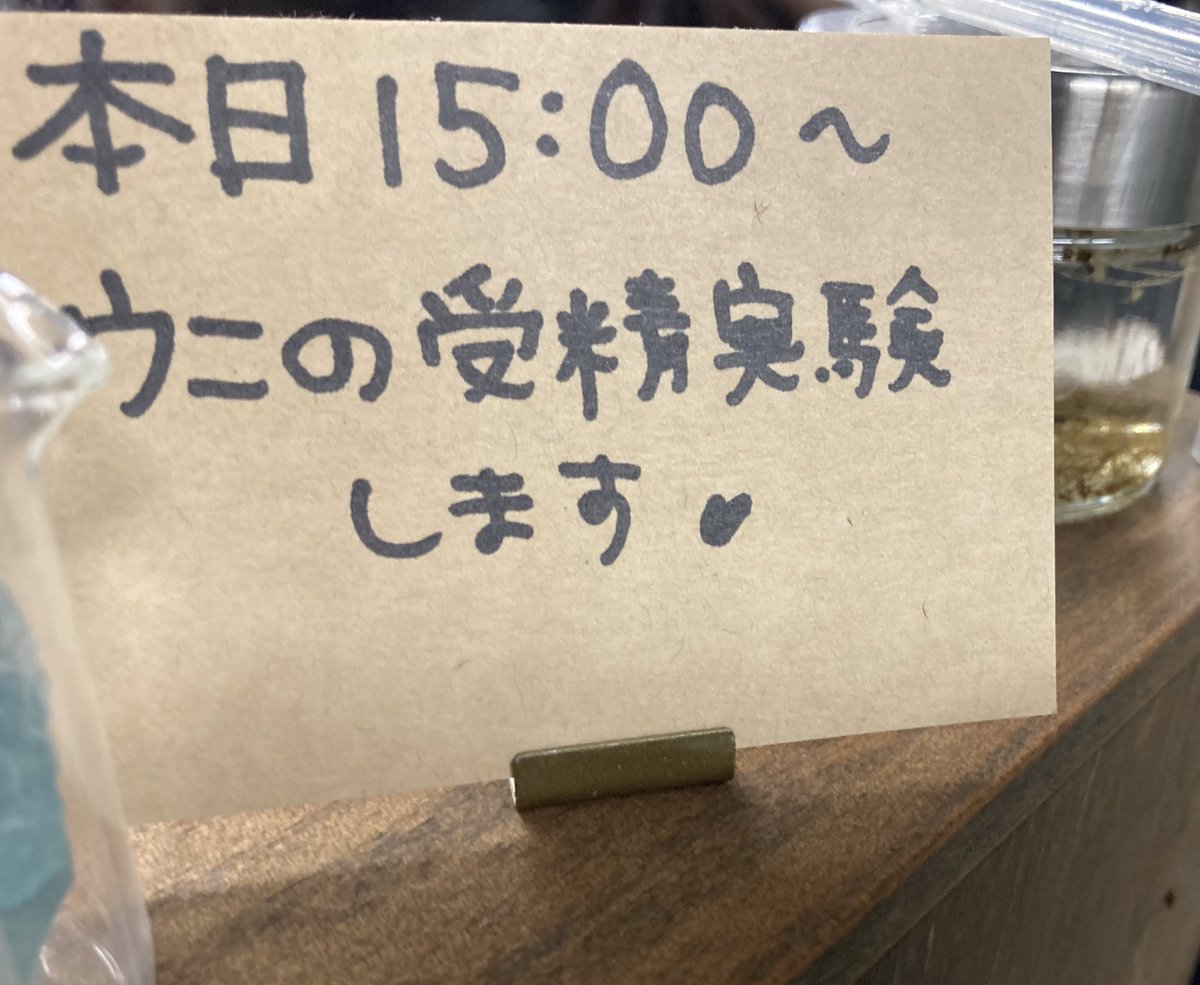 本日15:00〜
ウニの受精実験
します♥